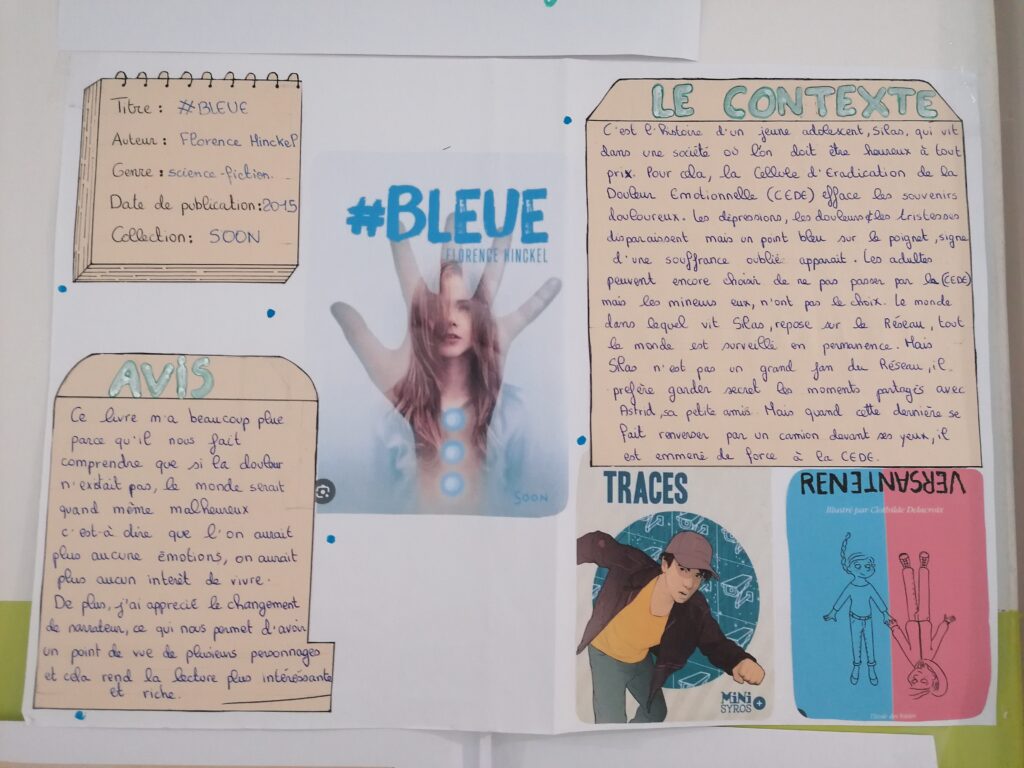 Titre : #BLEUE
Auteur : Florence Hinckel
Genre : science-fiction.
Date de publication : 2015
Collection : SOON
AVIS
Ce livre m'a beaucoup plue
parce qu'il nous fait
comprendre que si la douleur
n'existait pas, le monde serait
quand même malheureux
c'est-à dire que l'on aurait
plus aucune émotions, on aurait
plus aucun interêt de vivre.
De plus, j'ai apprecié le changement
de narrateur, ce qui nous permet d'avoir
un point de vue de plusieurs personnages
et cela rend la lecture plus intéressante
et riche.
#BLEUE
FLORENCE HINCKEL
SOON
LE CONTEXTE
C'est l'histoire d'un jeune adolescent, Silas, qui vit
dans une société où l'on doit être heureux à tout
prix. Pour cela, la Cellule d'Eradication de la
Douleur Emotionnelle (CEDE) efface les souvenirs
douloureux. Les dépressions, les douleurs & les tristesses
disparaissent mais un point bleu sur le poignet, signe
d'une souffrance oublié apparait. Les adultes
peuvent encore choisir de ne pas passer par la (CEDE)
mais les mineurs eux, n'ont pas le choix. Le monde
dans lequel vit Silas, repose sur le Réseau, tout
le monde est surveillé en permanence. Mais
Silas n'est pas un grand fan du Réseau, il
préfère garder secret les moments partagés avec
Astrid, sa petite amie. Mais quand cette dernière se
fait renverser par un camion devant ses yeux, il
est emmené de force à la CEDE.
TRACES
MiNi
SYROS
+
RENVERSANTE
Illustré par Clothilde Delacroix
l'école des loisirs